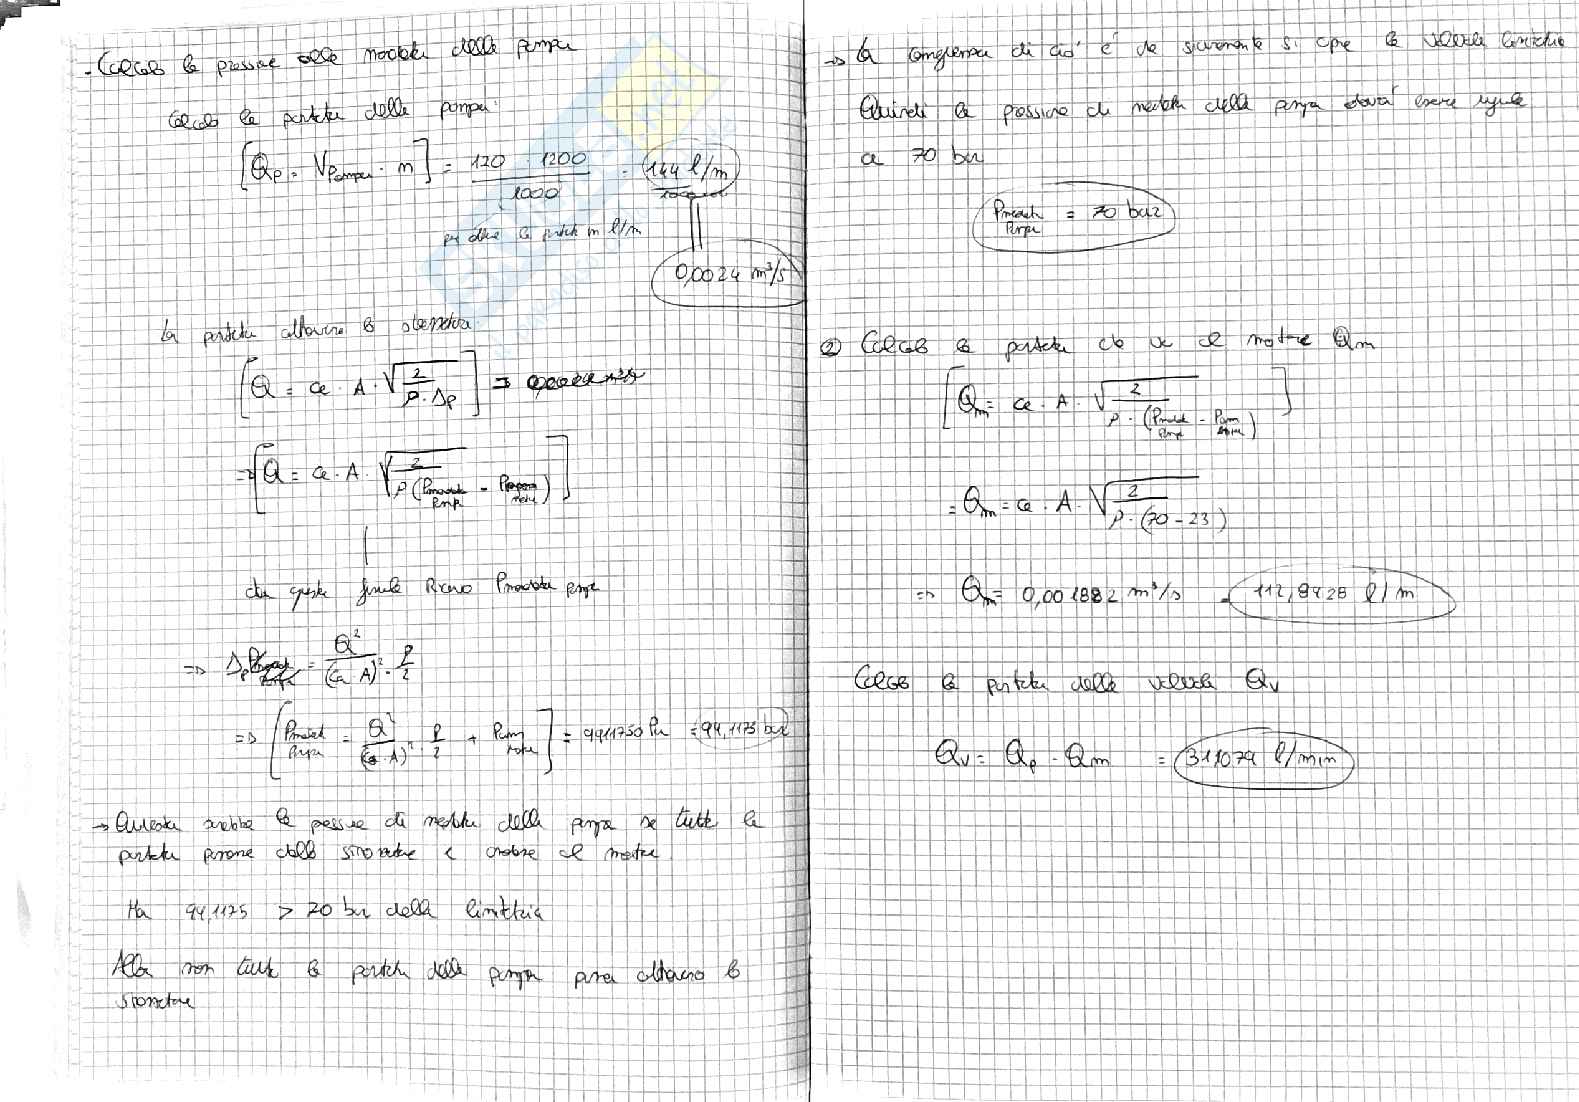 - Calcolo la pressione alla mandata della pompa
Calcolo la portata della pompa:
[Qp = Vpompa · n] = 120 · 1200 / 1000 = 144 l/m
per avere la portata in l/m
0,0024 m³/s
la portata attraverso lo strozzatore
[Q = ce · A · √(2 / ρ · Δp)] =>
=> [Q = ce · A · √(2 / ρ (Pmandata pompa - Pmotore))]
da questa formula Ricavo Pmandata pompa
=> Δp = Q² / (ce A)² · ρ/2
=> [Pmandata pompa = Q² / (ce · A)² · ρ/2 + Pam motore] = 9411750 Pa = 94,1175 bar
→ Questa sarebbe la pressione di mandata della pompa se tutta la
portata passasse dallo strozzatore e andasse al motore.
Ma 94,1175 > 70 bar della limitatrice
Allora non tutta la portata della pompa passa attraverso lo
strozzatore
→ la conseguenza di ciò è che sicuramente si apre la valvola limitatrice
Quindi la pressione di mandata della pompa dovrà essere uguale
a 70 bar
Pmandata pompa = 70 bar
② Calcolo la portata che va al motore Qm
[Qm = ce · A · √(2 / ρ · (Pmandata pompa - Pam motore))]
= Qm = ce · A · √(2 / ρ · (70 - 23))
=> Qm = 0,001882 m³/s = 112,8928 l/m
Calcolo la portata della valvola Qv
Qv = Qp - Qm = 31,1074 l/min